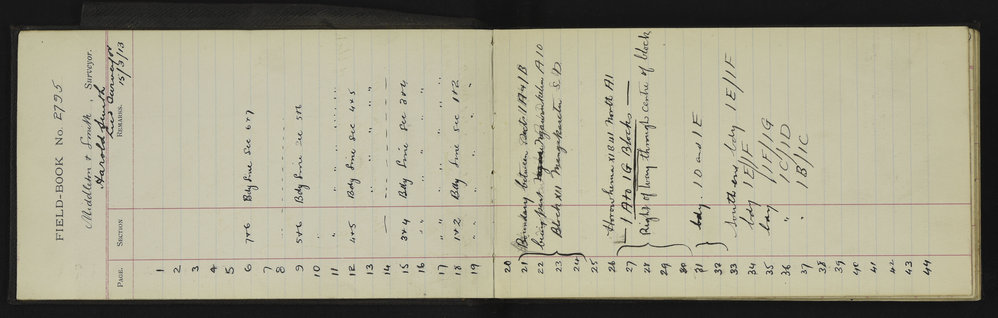 FIELD-BOOK No. 2795
Middleton & Smith, Surveyor.
Harold Smith
Lic. Surveyor
15/3/13
PAGE. SECTION REMARKS.
1
2
3
4
5
6 7+6 Bdy Line Sec 6+7
7
8
9 5+6 Bdy Line Sec 5+6
10 " " " "
11 " " " "
12 4+5 Bdy Line Sec 4+5
13 " " " "
14
15 3+4 Bdy Line Sec 3+4
16 " " " "
17 " " " "
18 1+2 Bdy Line Sec 1+2
19 " "
20
21 Boundary between Sects 1A4/B
22 being part A 10
23 Block XII S.D.
24
25
26 Horowhenua XIB 41 North A1
27 1A to 1G Blocks
28 Right of way through centre of block
29
30
31 bdy 1D and 1E
32
33 South end bdy 1E/1F
34 bdy 1E/1F
35 bdy 1F/1G
36 " 1C/1D
37 " 1B/1C
38
39
40
41
42
43
44